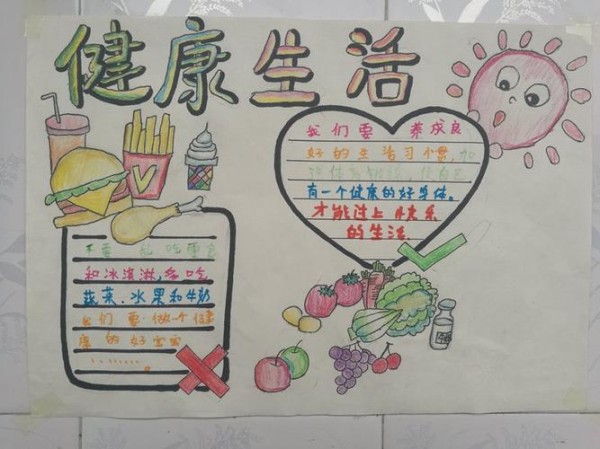 健康生活
我们要 养成良
好的生活习惯,加
强体育锻炼,使自己
有一个健康的好身体。
才能过上快乐
的生活.
不要 乱 吃零食
和冰淇淋,多吃
蔬菜、水果和牛奶
我们要做一个健
康 的 好 宝宝